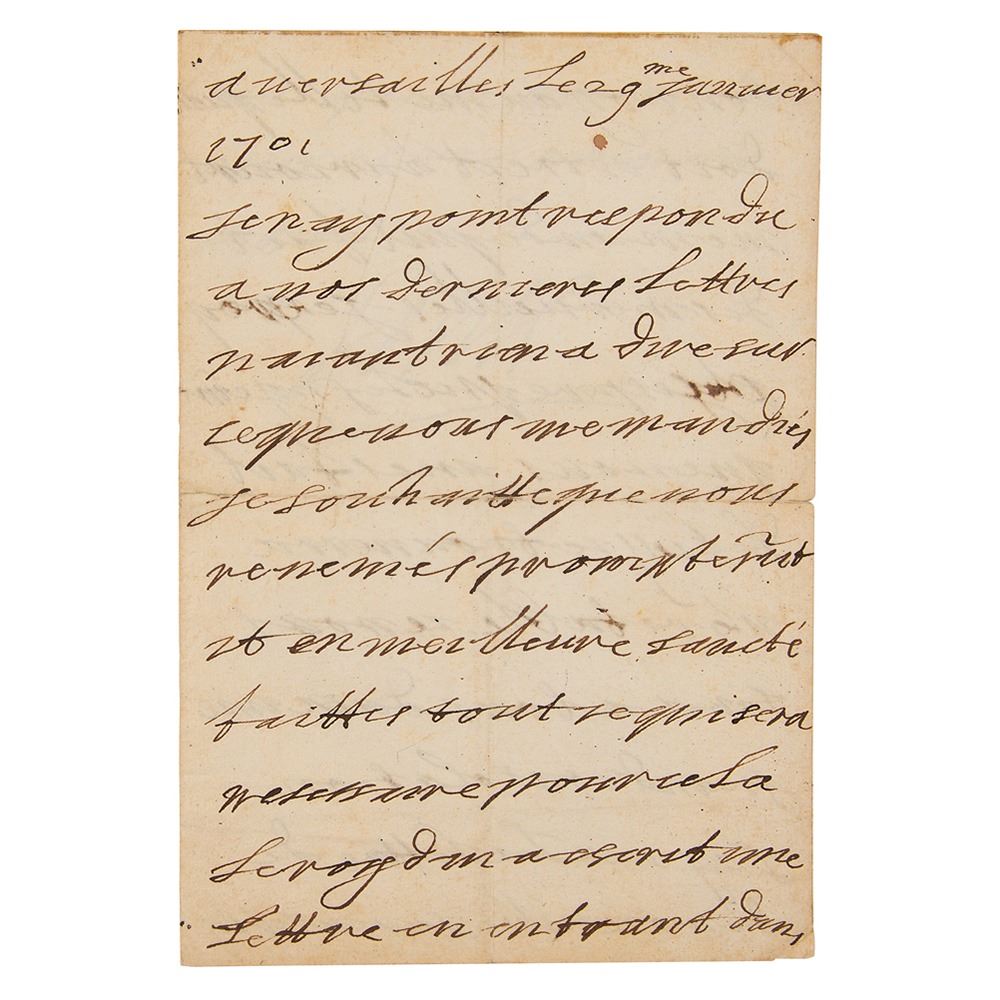 a versailles le 29me janvier
1701
je n'ay point respondu
a vos dernieres lettres
naiant rien a dire sur
ce que vous me mandiés
je souhaitte que vous
reneniés promptem̃t
et en meilleure santé
faittes tout ce qui sera
nescessaire pour cela
le roy d m a escrit une
lettre en entrant dans